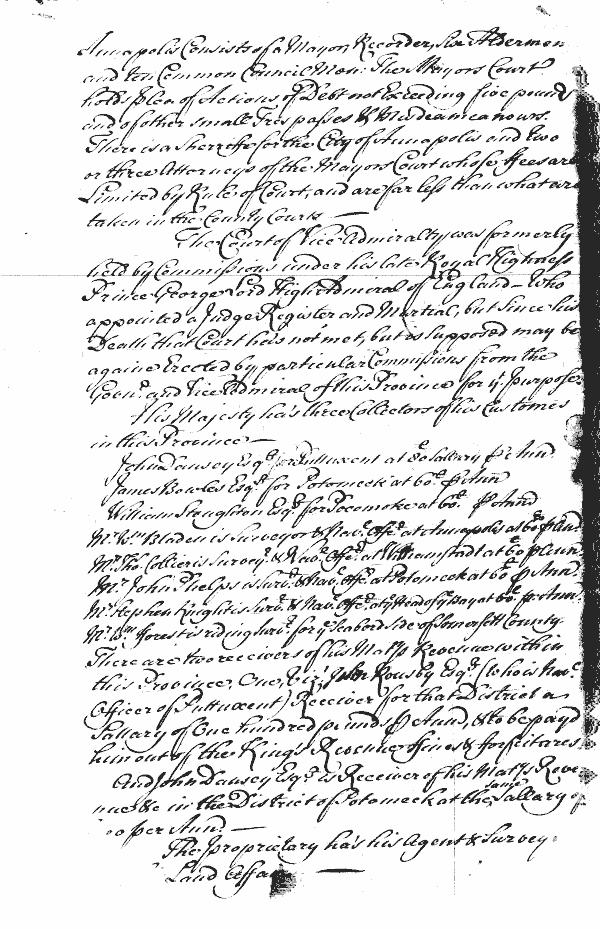 Annapolis Consists of a Mayor, Recorder, Six Aldermen
and ten Common Council Men: The Mayors Court
holds Plea of Actions of Debt not Exceeding five pound
and of other small Trespasses & Misdemeanours.
There is a Sherriffe for the City of Annapolis and two
or three Attorneys of the Mayors Court whose ffees are
Limited by Rule of Court, and are far less than what are
taken in the County Courts —
The Court of Vice Admiralty was formerly
held by Commissions under his late Royal Highness
Prince George Lord High Admiral of England — Who
appointed a Judge Register and Martial, but Since his
Death that Court has not met, but is supposed may be
againe Erected by particular Commissions from the
Govr. and Vice Admiral of this Province for ye. purpose
His Majesty has three Collectors of his Customes
in this Province —
John Dansey Esqr. for Puttuxent at 80 Sallary ⅌ Ann
James Bowles Esqr. for Potomeck at 60. ⅌ Ann
William Stoughton Esqr. for Pocomoke at 60. ⅌ Annd
Mr. Wm. Bladen is Surveyor & Nav. Offr. at Annapolis at 60 ⅌ Ann
Mr. Tho. Collier is Survey. & Nav. Offr. at Williamstad at 60 ⅌ Ann
Mr. John Phelps is Surv. & Nav. Offr. at Potomeck at 60 ⅌ Ann.
Mr. Stephen Knight is Surv. & Nav. Offr. at ye Head of ye Bay at 60. ⅌ Ann.
Mr. Wm. fforest is riding Surv. for ye Seabord side of Somersett County
There are two receivers of his Matys Revenue within
this Province, One, Viz., John Rousby Esqr. (who is Nav.
Officer of Puttuxent) Receiver for that District a
Sallary of One hundred pounds ⅌ Ann, & to be payd
him out of the Kings Revenue ffines & forfeitures
And John Dansey Esqr. is Receiver of his Matys Reve
nue & in the District of Potomeck at the same Sallary of
per Ann. —
The Proprietary has his Agent & Survey
Land Affai —